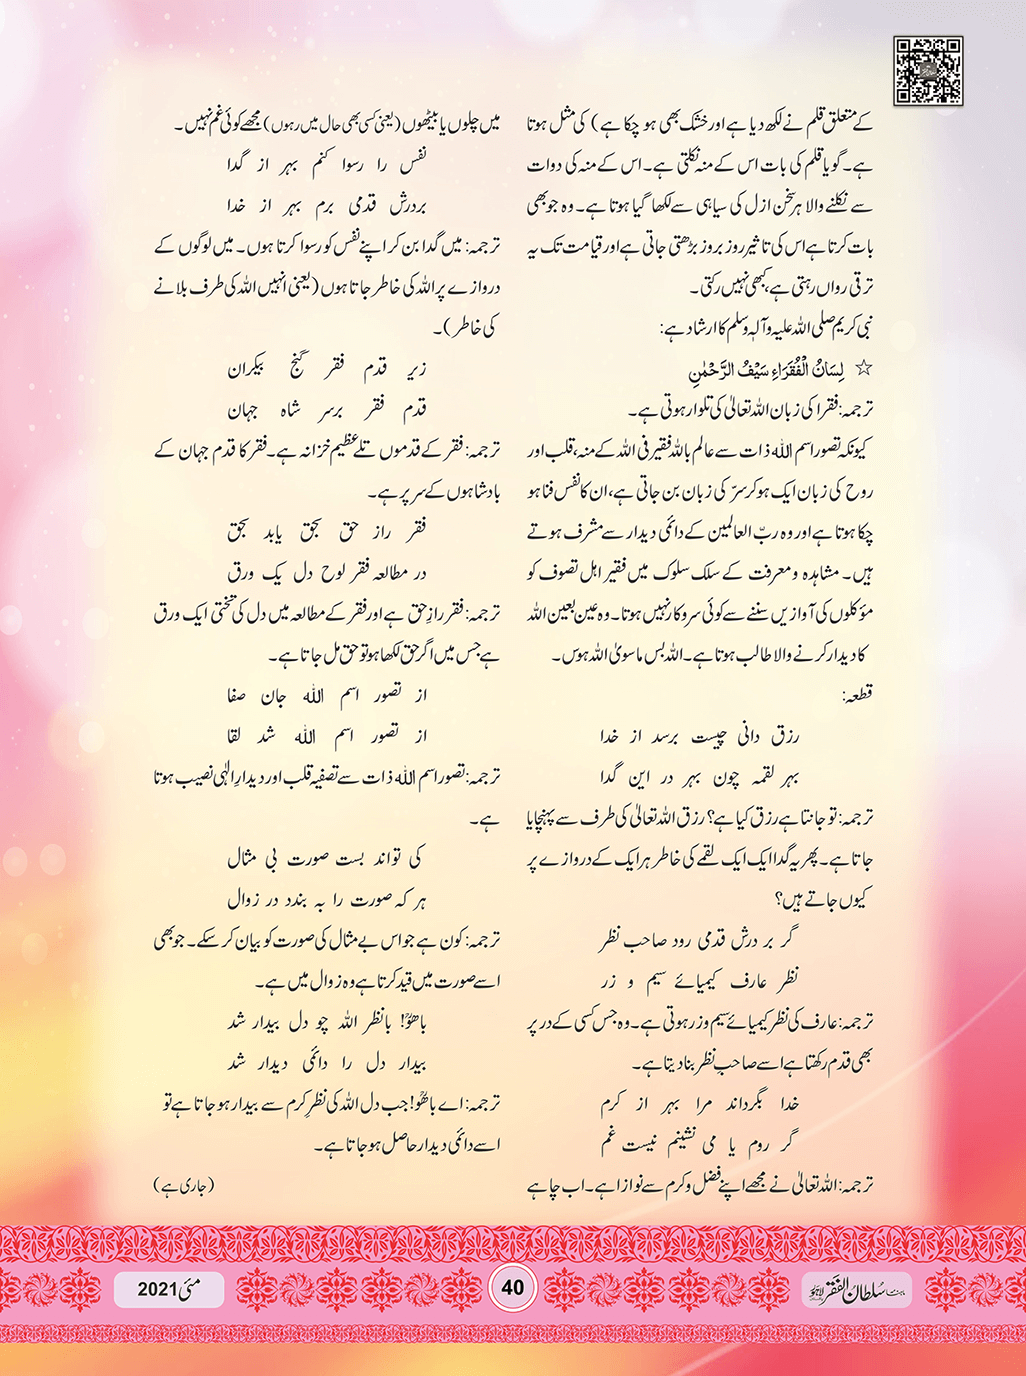 کے متعلق قلم نے لکھ دیا ہے اور خشک بھی ہو چکا ہے) کی مثل ہوتا
ہے۔ گویا قلم کی بات اس کے منہ نکلتی ہے۔ اس کے منہ کی دوات
سے نکلنے والا ہر سخن ازل کی سیاہی سے لکھا گیا ہوتا ہے۔ وہ جو بھی
بات کرتا ہے اس کی تاثیر روز بروز بڑھتی جاتی ہے اور قیامت تک یہ
ترقی رواں رہتی ہے، کبھی نہیں رکتی۔
نبی کریم صلی اللہ علیہ وآلہٖ وسلم کا ارشاد ہے:
☆ لِسَانُ الْفُقَرَاءِ سَیْفُ الرَّحْمٰنِ
ترجمہ: فقرا کی زبان اللہ تعالیٰ کی تلوار ہوتی ہے۔
کیونکہ تصور اسم اللہ ذات سے عالم باللہ فقیر فی اللہ کے منہ، قلب اور
روح کی زبان ایک ہو کر سِرّ کی زبان بن جاتی ہے، ان کا نفس فنا ہو
چکا ہوتا ہے اور وہ ربّ العالمین کے دائمی دیدار سے مشرف ہوتے
ہیں۔ مشاہدہ و معرفت کے سلک سلوک میں فقیر اہل تصوف کو
مؤکلوں کی آوازیں سننے سے کوئی سروکار نہیں ہوتا۔ وہ عین بعین اللہ
کا دیدار کرنے والا طالب ہوتا ہے۔ اللہ بس ماسویٰ اللہ ہوس۔
قطعہ:
رزق دانی چیست برسد از خدا
بہر لقمہ چون بہر در این گدا
ترجمہ: تو جانتا ہے رزق کیا ہے؟ رزق اللہ تعالیٰ کی طرف سے پہنچایا
جاتا ہے۔ پھر یہ گدا ایک ایک لقمے کی خاطر ہر ایک کے دروازے پر
کیوں جاتے ہیں؟
گر بر درش قدمی رود صاحب نظر
نظر عارف کیمیائے سیم و زر
ترجمہ: عارف کی نظر کیمیائے سیم وزر ہوتی ہے۔ وہ جس کسی کے در پر
بھی قدم رکھتا ہے اسے صاحبِ نظر بنا دیتا ہے۔
خدا بگرداند مرا بہر از کرم
گر روم یا می نشینم نیست غم
ترجمہ: اللہ تعالیٰ نے مجھے اپنے فضل و کرم سے نوازا ہے۔ اب چاہے
میں چلوں یا بیٹھوں (یعنی کسی بھی حال میں رہوں) مجھے کوئی غم نہیں۔
نفس را رسوا کنم بہر از گدا
بردرش قدمی برم بہر از خدا
ترجمہ: میں گدا بن کر اپنے نفس کو رسوا کرتا ہوں۔ میں لوگوں کے
دروازے پر اللہ کی خاطر جاتا ہوں (یعنی انہیں اللہ کی طرف بلانے
کی خاطر)۔
زیر قدم فقر گنج بیکران
قدم فقر برسر شاہ جہان
ترجمہ: فقر کے قدموں تلے عظیم خزانہ ہے۔ فقر کا قدم جہان کے
بادشاہوں کے سر پر ہے۔
فقر راز حق بحق یابد بحق
در مطالعہ فقر لوح دل یک ورق
ترجمہ: فقر رازِ حق ہے اور فقر کے مطالعہ میں دل کی تختی ایک ورق
ہے جس میں اگر حق لکھا ہو تو حق مل جاتا ہے۔
از تصور اسم اللہ جان صفا
از تصور اسم اللہ شد لقا
ترجمہ: تصور اسم اللہ ذات سے تصفیہ قلب اور دیدارِ الٰہی نصیب ہوتا
ہے۔
کی تواند بست صورت بی مثال
ہر کہ صورت را بہ بندد در زوال
ترجمہ: کون ہے جو اس بے مثال کی صورت کو بیان کر سکے۔ جو بھی
اسے صورت میں قید کرتا ہے وہ زوال میں ہے۔
باھُوؒ! بانظر اللہ چو دل بیدار شد
بیدار دل را دائمی دیدار شد
ترجمہ: اے باھُوؒ! جب دل اللہ کی نظرِ کرم سے بیدار ہو جاتا ہے تو
اسے دائمی دیدار حاصل ہو جاتا ہے۔
(جاری ہے)
ماہنامہ سلطان الفقر لاہور
40
مئی 2021